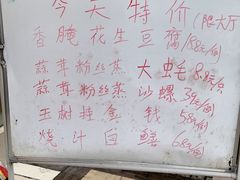 今天特价(限大厅
香腌花生豆腐18元/例
蒜茸粉丝蒸大蚝8.8元/只
蒜茸粉丝蒸沙螺39元/例
玉树挂金钱58元/例
烧汁白鳝68元/例